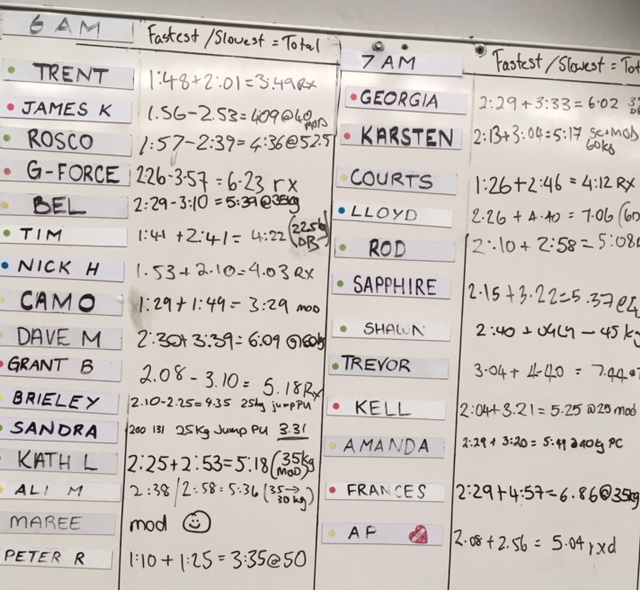 6 AM Fastest/Slowest = Total
TRENT 1:48+2:01=3.49 Rx
JAMES K 1.56-2.53=409@40 MOD
ROSCO 1:57-2:39=4:36@52.5
G-FORCE 226-3-57=6-23 rx
BEL 2:29-3:10=5:39@35kg
TIM 1:41+2:41=4:22 (22.5kg DB)
NICK H 1.53+2.10=4.03 Rx
CAMO 1:29+1:49=3:29 mod
DAVE M 2:30+3:39=6:09 @60kg
GRANT B 2.08-3.10=5.18 Rx
BRIELEY 2.10-2.25=4.35 25kg jump PU
SANDRA 200 131 25Kg Jump PU 3.31
KATH L 2:25+2:53=5:18 (35kg MOD)
ALI M 2:38/2:58=5:36 (35→30kg)
MAREE mod
PETER R 1:10+1:25=3:35@50
7 AM Fastest/Slowest = Tot
GEORGIA 2:29+3:33=6.02
KARSTEN 2:13+3:04=5:17 60kg
COURTS 1:26+2:46=4:12 RX
LLOYD 2.26+4.40=7.06 (60
ROD 2:10+2:58=5:08
SAPPHIRE 2.15+3.22=5.37@
SHAWN 2:40+ 45 kg
TREVOR 3.04+4.40=7.44
KELL 2:04+3.21=5.25@25 mod
AMANDA 2:29+3:20= PC
FRANCES 2:29+4:57=6.86@35kg
AP 2.08+2.56=5.04 rxd